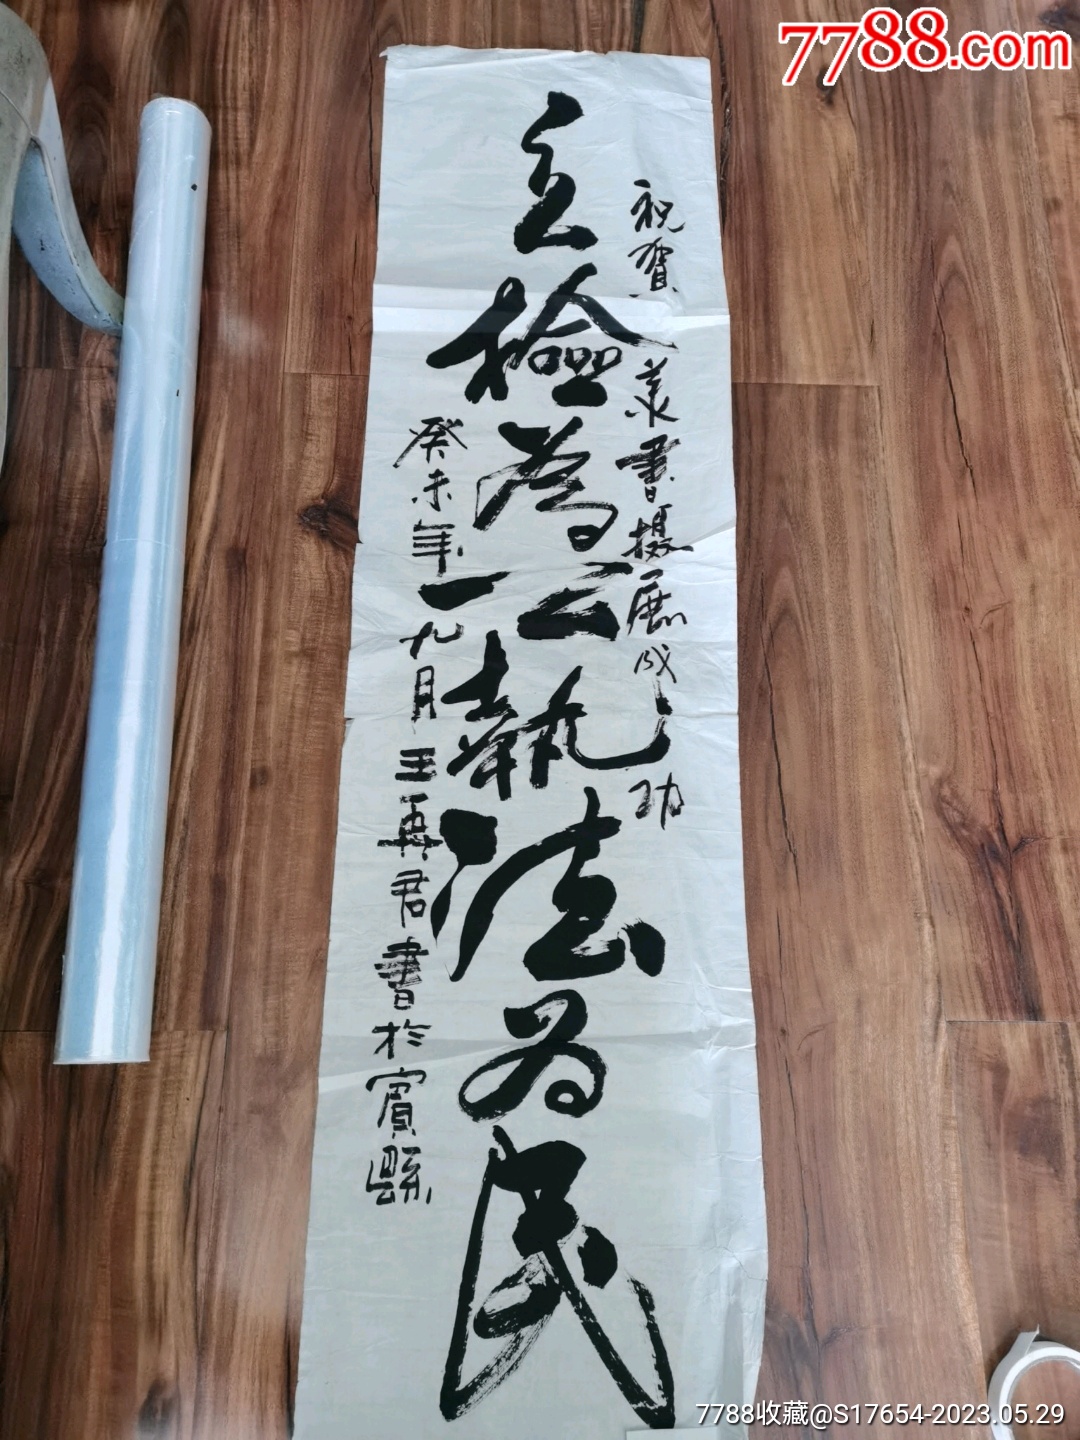 7788.com
祝賀美書攝展成功
立檢為公執法為民
癸未年九月王再君書於賓縣
7788收藏@S17654-2023.05.29